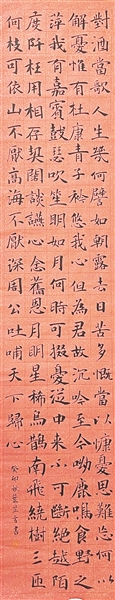 對酒當歌人生幾何譬如朝露去日苦多慨當以慷憂思難忘何以
解憂惟有杜康青〻子衿悠〻我心但為君故沉吟至今呦〻鹿鳴食野之
萍我有嘉賓鼓瑟吹笙明〻如月何時可掇憂從中來不可斷絕越陌
度阡枉用相存契闊談讌心念舊恩月明星稀烏鵲南飛繞樹三匝
何枝可依山不厭高海不厭深周公吐哺天下歸心
癸卯